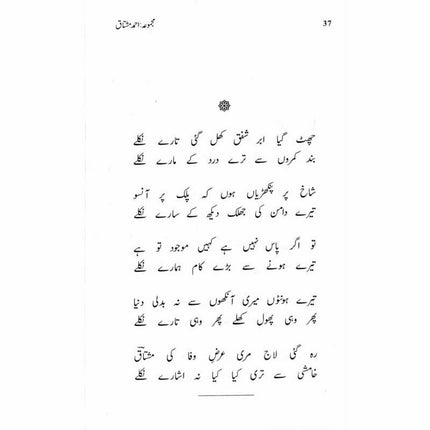 مجموعہ: احمد مشتاق
37
چھٹ گیا ابر شفق کھل گئی تارے نکلے
بند کمروں سے ترے درد کے مارے نکلے
شاخ پر پنکھڑیاں ہوں کہ پلک پر آنسو
تیرے دامن کی جھلک دیکھ کے سارے نکلے
تو اگر پاس نہیں ہے کہیں موجود تو ہے
تیرے ہونے سے بڑے کام ہمارے نکلے
تیرے ہونٹوں میری آنکھوں سے نہ بدلی دنیا
پھر وہی پھول کھلے پھر وہی تارے نکلے
رہ گئی لاج مری عرضِ وفا کی مشتاقؔ
خامشی سے تری کیا کیا نہ اشارے نکلے